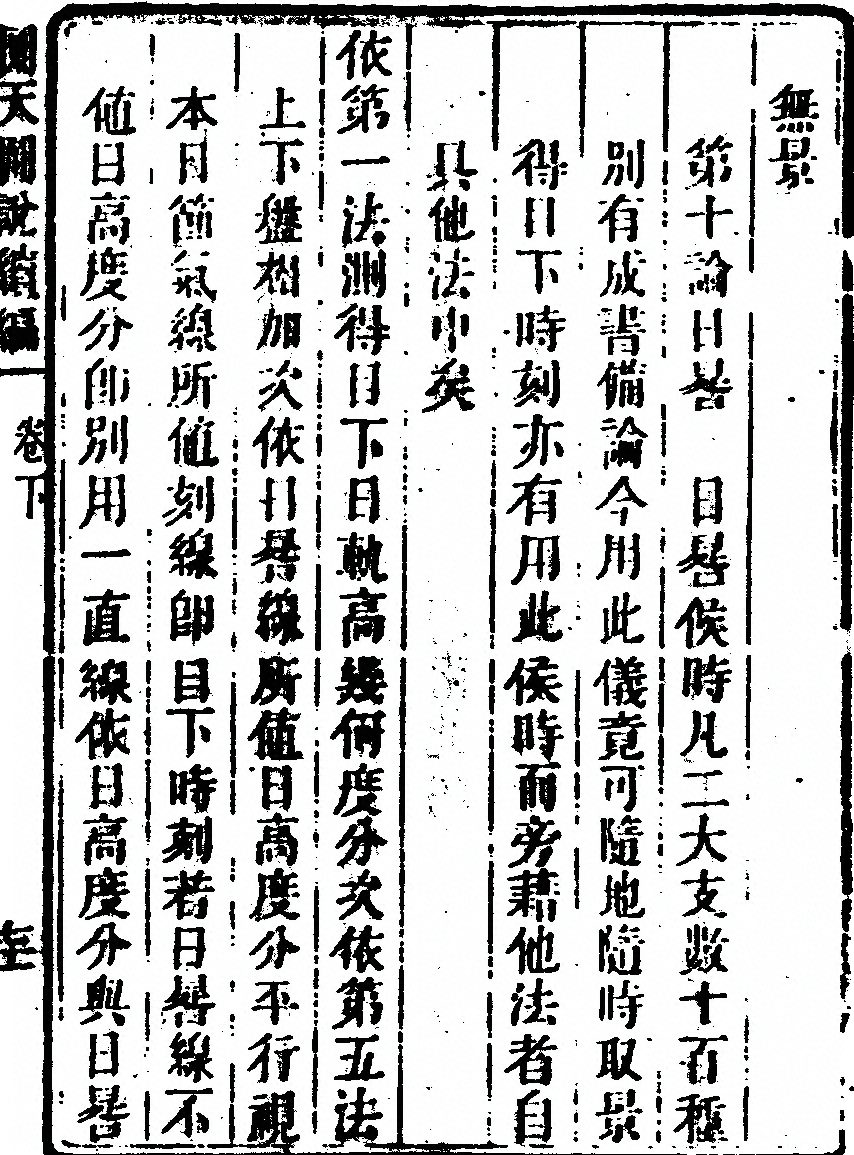 無景
第十論日晷　日晷候時凡二大支數十百種
別有成書備論今用此儀竟可隨地隨時取景
得日下時刻亦有用此候時而旁藉他法者自
具他法中矣
依第一法測得日下日軌高幾何度分次依第五法
上下盤相加次依日晷線所值日高度分平行視
本日節氣線所值刻線即日下時刻若日晷線不
值日高度分即別用一直線依日高度分與日晷
卷下